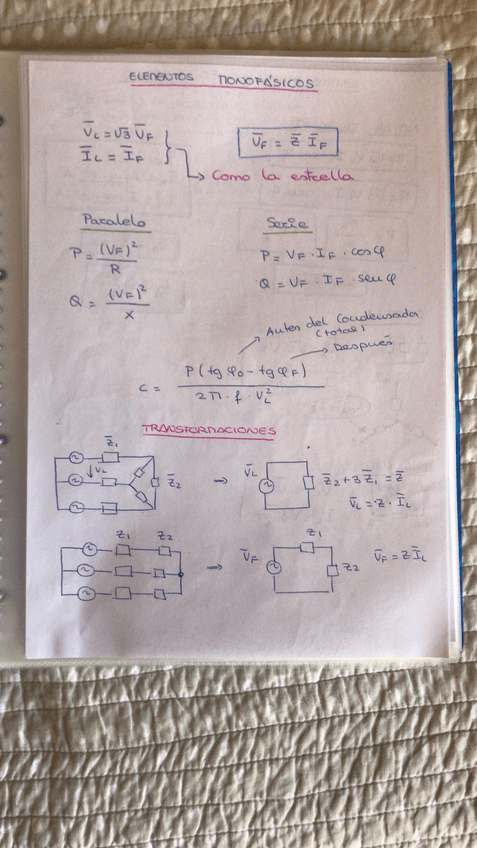 ELEMENTOS MONOFÁSICOS
V̄L = √3 V̄F
ĪL = ĪF
V̄F = Z̄ ĪF
Como la estrella
Paralelo
P = (VF)² / R
Q = (VF)² / X
Serie
P = VF · IF · cosφ
Q = VF · IF · senφ
Antes del Condensador
(total)
Después
C = P(tgφ0 - tgφF) / 2π · f · VL²
TRANSFORMACIONES
Z̄1
VL
Z̄2
→
V̄L
Z̄2 + 3Z̄1 = Z̄
V̄L = Z · ĪL
Z1 Z2
→
V̄F
Z1
Z2
V̄F = Z ĪL